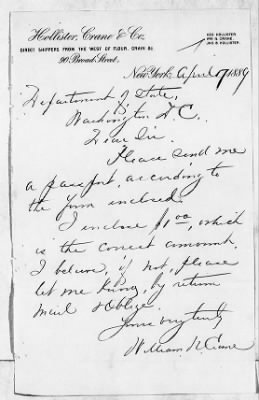 Hollister, Crane & Co.
DIRECT SHIPPERS FROM THE WEST OF FLOUR, GRAIN &c.
90 Broad Street,
GEO. HOLLISTER
WM. N. CRANE
JNO. B. HOLLISTER
New York, April 7 1889
Department of State,
Washington D.C.
Dear Sir.
Please send me
a passport, according to
the form inclosed.
I inclose $1.00, which
is the correct amount,
I believe, if not, please
let me know, by return
mail & oblige.
Yours very truly
William N. Crane